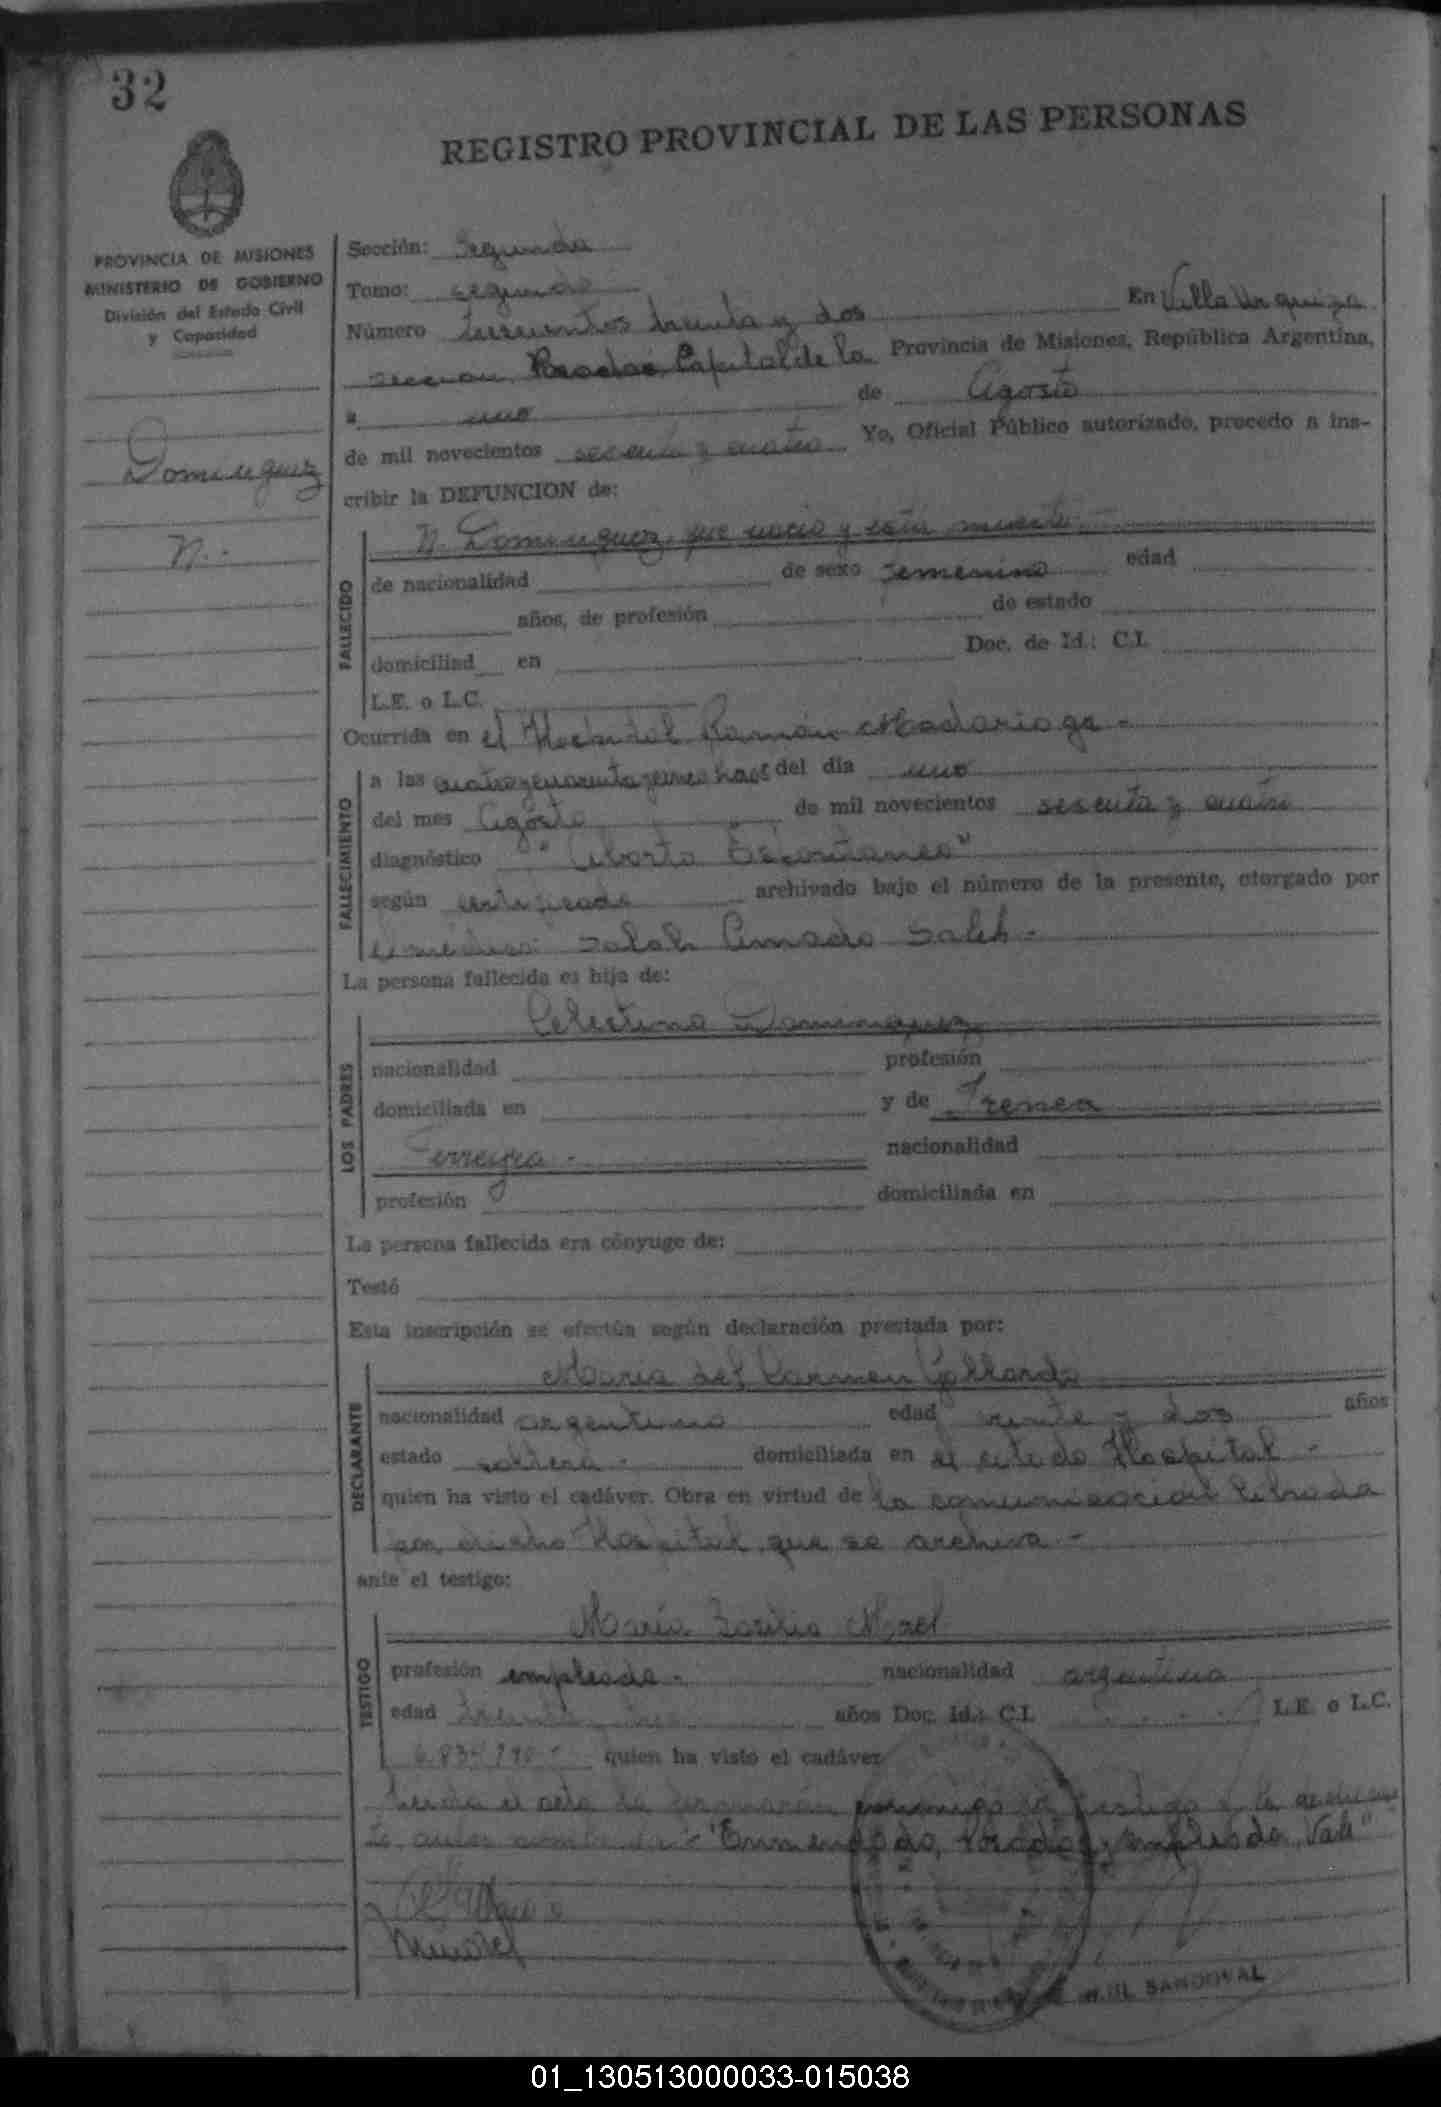 32
REGISTRO PROVINCIAL DE LAS PERSONAS
PROVINCIA DE MISIONES
MINISTERIO DE GOBIERNO
División del Estado Civil
y Capacidad
Dominguez
N.-
Sección: Segunda
Tomo: segundo
Número trescientos treinta y dos En Villa Urquiza
seccion Posadas, Capital de la Provincia de Misiones, República Argentina,
a uno de Agosto
de mil novecientos sesenta y cuatro Yo, Oficial Público autorizado, procedo a ins-
cribir la DEFUNCION de:
FALLECIDO
N. Dominguez, que nacio y esta muerta.-
de nacionalidad de sexo femenino edad
años, de profesión de estado
domiciliad en Doc. de Id.: C.I.
L.E. o L.C.
Ocurrida en el Hospital Ramón Madariaga.-
FALLECIMIENTO
a las cuatro y cuarenta y cinco horas del día uno
del mes Agosto de mil novecientos sesenta y cuatro
diagnóstico "Aborto Espontaneo"
según certificado archivado bajo el número de la presente, otorgado por
el médico: Salah Amado Saleh.-
La persona fallecida es hija de:
LOS PADRES
Celestino Dominguez
nacionalidad profesión
domiciliada en y de Irenea
Ferreyra.-
nacionalidad
profesión domiciliada en
La persona fallecida era cónyuge de:
Testó
Esta inscripción se efectúa según declaración prestada por:
DECLARANTE
María del Carmen Gallardo
nacionalidad argentina edad veinte y dos años
estado soltera.- domiciliada en el citado Hospital.-
quien ha visto el cadáver. Obra en virtud de la comunicación librada
por dicho Hospital, que se archiva.-
ante el testigo:
TESTIGO
María
profesión empleada.- nacionalidad argentina
edad treinta años Doc. Id.: C.I. L.E. o L.C.
quien ha visto el cadáver
Leida el acta la firmaran conmigo el testigo y la
"Enmendado, Posadas y empleada, Vale"
SANDOVAL
01_130513000033-015038